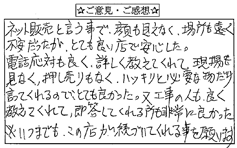 ★ご意見・ご感想★
ネット販売と言う事で、顔も見えなく、場所も遠く
不安だったが、とても良い店で安心した。
電話応対も良く、詳しく教えてくれて、現場を
見なく、押し売りもなく、ハッキリと必要な物だけ
言ってくれるのでとても良かった。又工事の人も、良く
教えてくれて、即答してくれる所も非常に良かった
※いつまでも、この店が続づいてくれる事を願います